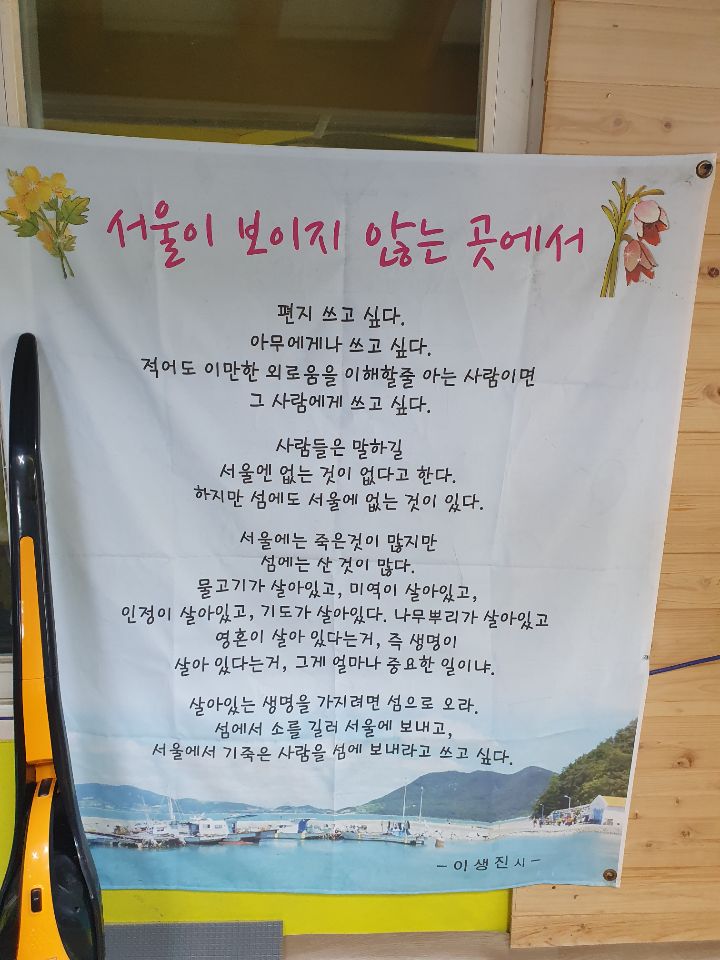 서울이 보이지 않는 곳에서
편지 쓰고 싶다.
아무에게나 쓰고 싶다.
적어도 이만한 외로움을 이해할줄 아는 사람이면
그 사람에게 쓰고 싶다.
사람들은 말하길
서울엔 없는 것이 없다고 한다.
하지만 섬에도 서울에 없는 것이 있다.
서울에는 죽은것이 많지만
섬에는 산 것이 많다.
물고기가 살아있고, 미역이 살아있고,
인정이 살아있고, 기도가 살아있다. 나무뿌리가 살아있고
영혼이 살아 있다는거, 즉 생명이
살아 있다는거, 그게 얼마나 중요한 일이냐.
살아있는 생명을 가지려면 섬으로 오라.
섬에서 소를 길러 서울에 보내고,
서울에서 기죽은 사람을 섬에 보내라고 쓰고 싶다.
- 이생진 시 -